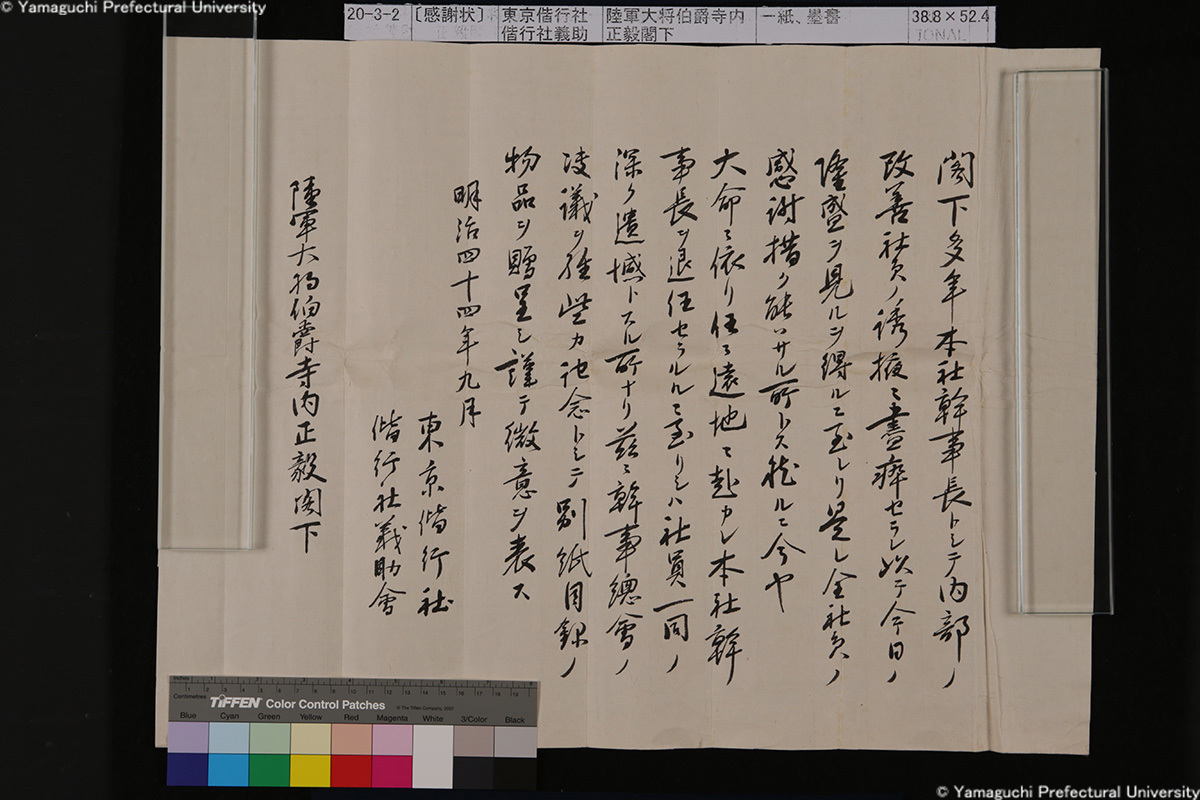 © Yamaguchi Prefectural University
20-3-2
〔感謝状〕
東京偕行社
偕行社義助
陸軍大将伯爵寺内
正毅閣下
一紙、墨書
38.8×52.4
閣下多年本社幹事長トシテ内部ノ
改善社員ノ誘掖ニ盡瘁セラレ以テ今日ノ
隆盛ヲ見ルヲ得ルニ至レリ是レ全社員ノ
感謝措ク能ハサル所トス然ルニ今ヤ
大命ニ依リ任ヲ遠地ニ赴カレ本社幹
事長ヲ退任セラルルニ至リシハ社員一同ノ
深ク遺憾トスル所ナリ茲ニ幹事總會ノ
決議ヲ経些カ記念トシテ別紙目録ノ
物品ヲ贈呈シ謹テ微意ヲ表ス
明治四十四年九月
東京偕行社
偕行社義助會
陸軍大将伯爵寺内正毅閣下
Inches
Centimetres
TIFFEN Color Control Patches
© The Tiffen Company, 2007
Blue Cyan Green Yellow Red Magenta White 3/Color Black
© Yamaguchi Prefectural University